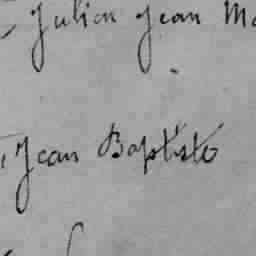 Julien Jean
Jean Baptiste